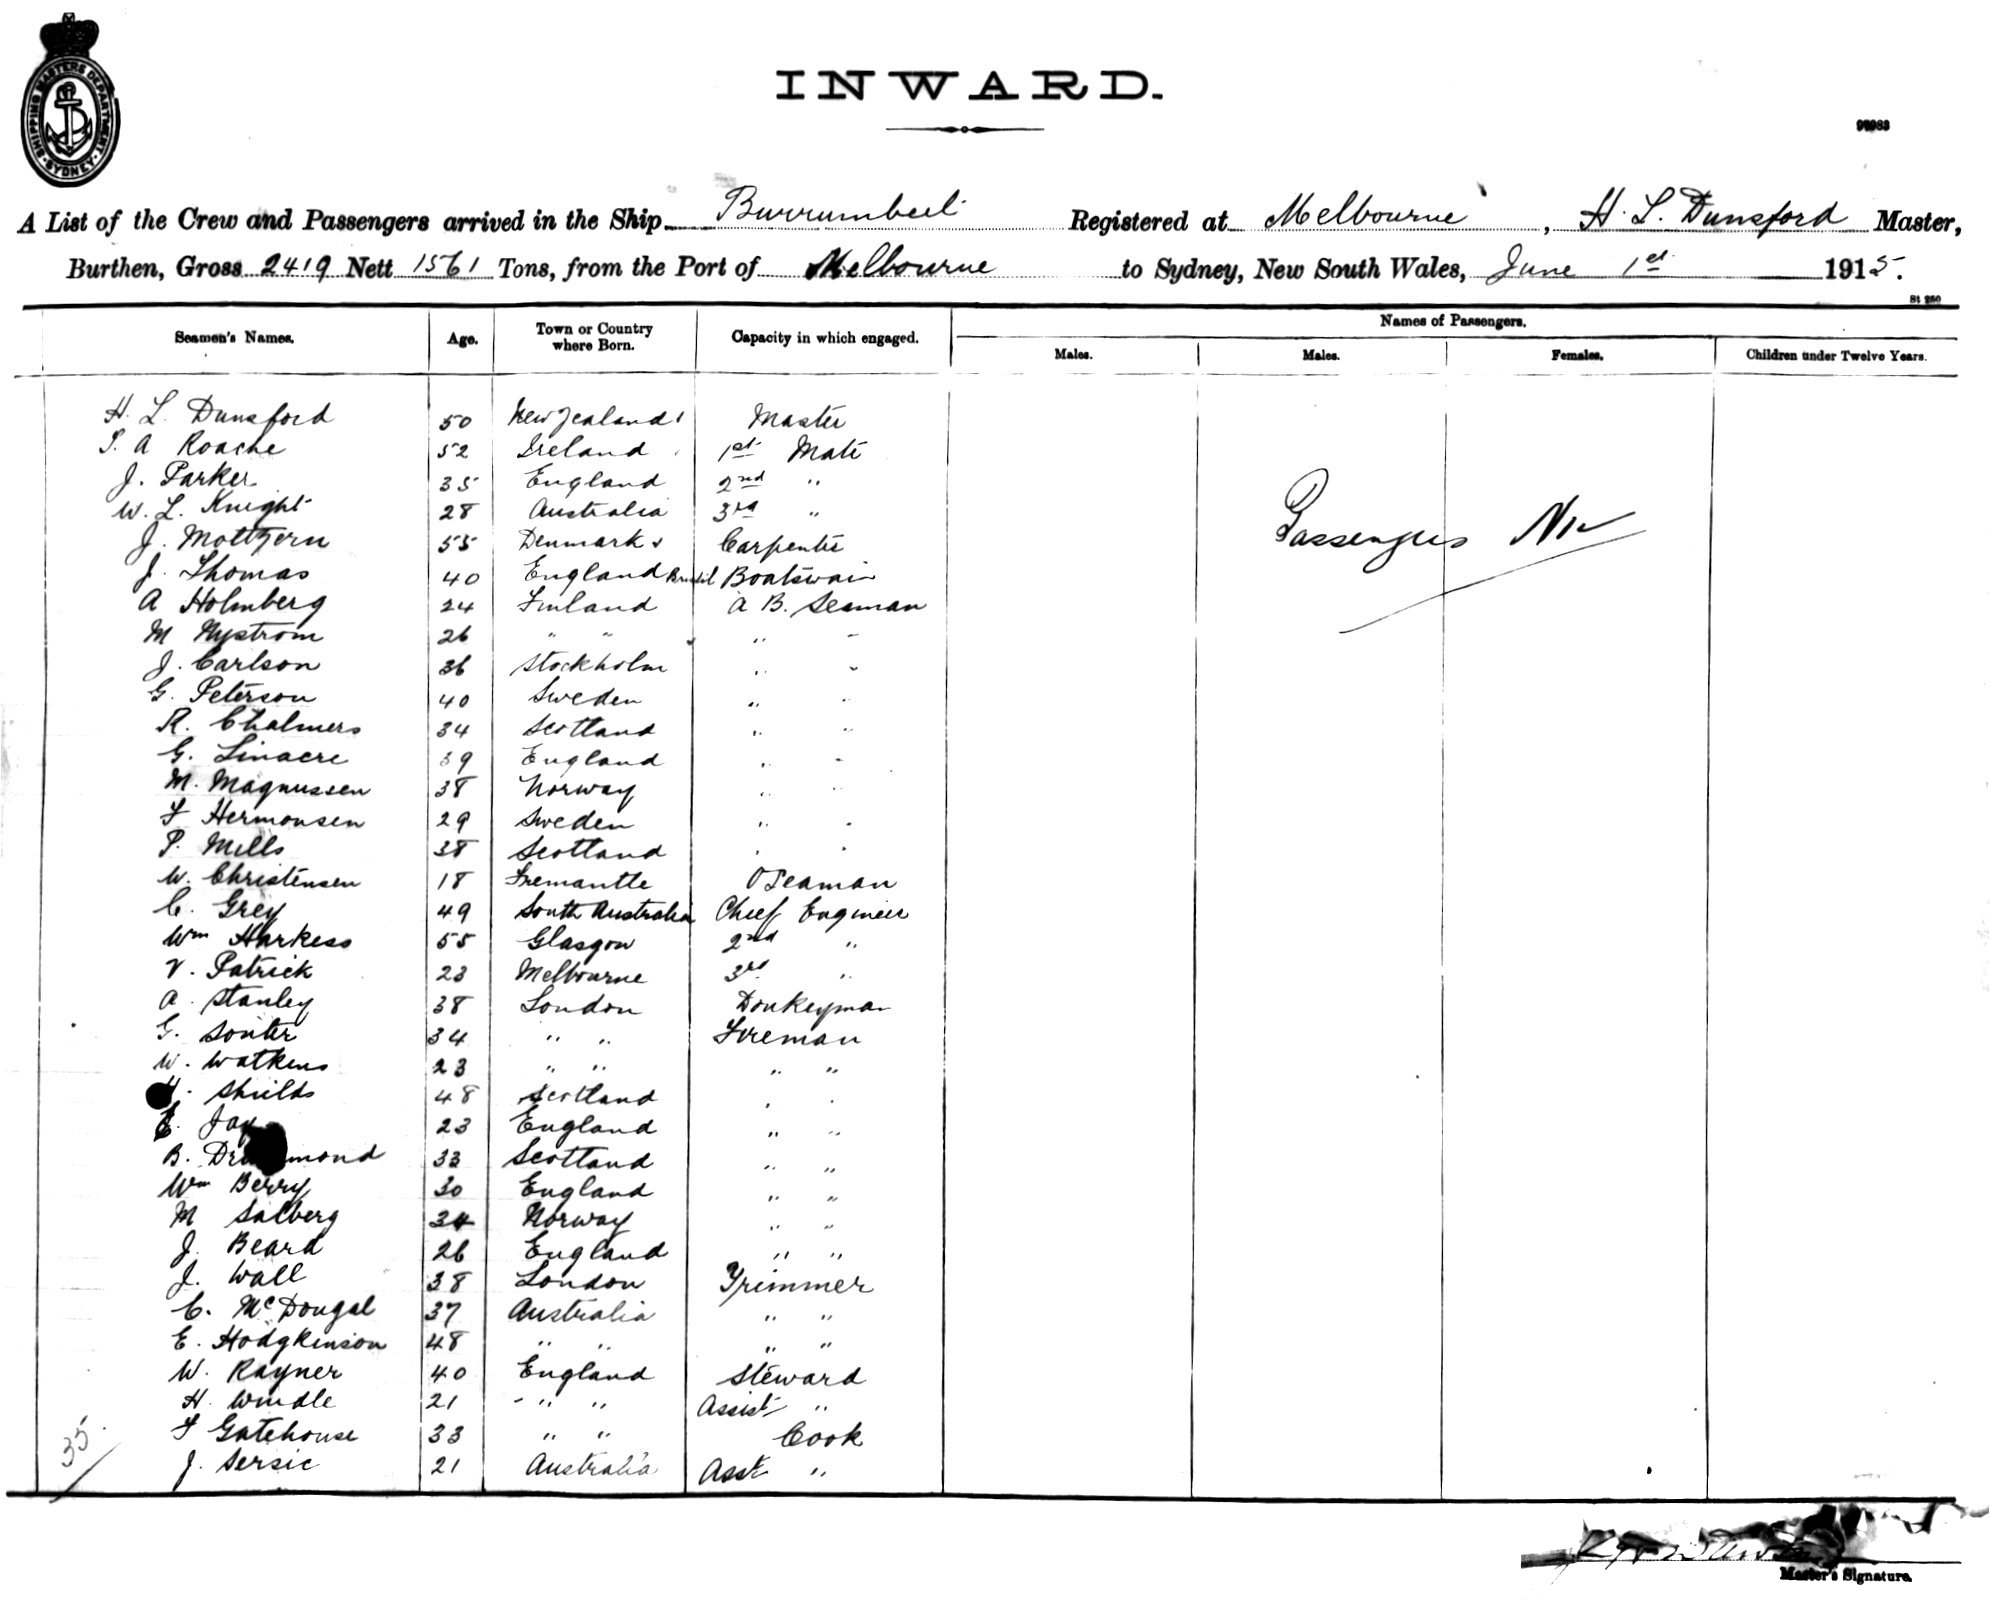 SHIPPING MASTERS DEPARTMENT · SYDNEY ·
INWARD.
A List of the Crew and Passengers arrived in the Ship Burrumbeet Registered at Melbourne, H. L. Dunsford Master,
Burthen, Gross 2419 Nett 1561 Tons, from the Port of Melbourne to Sydney, New South Wales, June 1st 1915.
Seamen's Names. Age. Town or Country where Born. Capacity in which engaged. Names of Passengers.
Males. Males. Females. Children under Twelve Years.
H. L. Dunsford 50 New Zealand Master
A Roache 52 Ireland 1st Mate
J. Parker 35 England 2nd "
W. L. Knight 28 Australia 3rd "
Passengers Nil
J. 55 Denmark Carpenter
J. Thomas 40 England Boatswain
A Holmberg 24 Finland A B. Seaman
M Nystrom 26 " " " "
J. Carlson 36 Stockholm " "
G. Peterson 40 Sweden " "
R. Chalmers 34 Scotland " "
G. Linacre 39 England " "
M. Magnussen 38 Norway " "
F Hermonsen 29 Sweden " "
P. Mills 38 Scotland " "
W. Christensen 18 Fremantle O Seaman
C. Grey 49 South Australia Chief Engineer
Wm Harkess 55 Glasgow 2nd "
V. Patrick 23 Melbourne 3rd "
A. Stanley 38 London Donkeyman
G. Souter 34 " " Fireman
W. Watkins 23 " " " "
Shields 48 Scotland " "
E. Jay 23 England " "
B. Drummond 33 Scotland " "
Wm Berry 30 England " "
M Salberg 34 Norway " "
J. Beard 26 England " "
J. Wall 38 London Trimmer
C. McDougal 37 Australia " "
E. Hodgkinson 48 " " " "
W. Rayner 40 England Steward
H. Windle 21 " " Assist "
F Gatehouse 33 " " Cook
J. Sersic 21 Australia Asst "
35
Master's Signature.